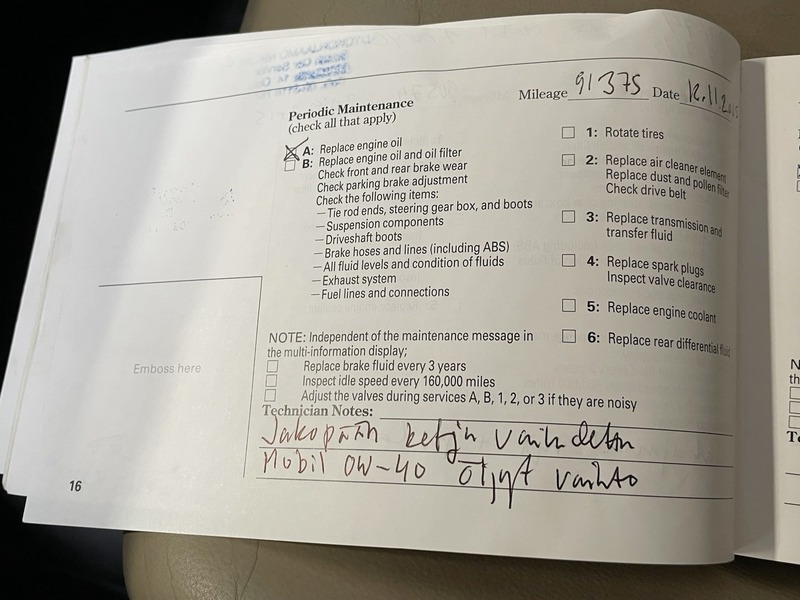 Mileage 91375 Date 12.11.20
Periodic Maintenance
(check all that apply)
A: Replace engine oil
B: Replace engine oil and oil filter
Check front and rear brake wear
Check parking brake adjustment
Check the following items:
— Tie rod ends, steering gear box, and boots
— Suspension components
— Driveshaft boots
— Brake hoses and lines (including ABS)
— All fluid levels and condition of fluids
— Exhaust system
— Fuel lines and connections
1: Rotate tires
2: Replace air cleaner element
Replace dust and pollen filter
Check drive belt
3: Replace transmission and
transfer fluid
4: Replace spark plugs
Inspect valve clearance
5: Replace engine coolant
6: Replace rear differential fluid
NOTE: Independent of the maintenance message in
the multi-information display;
Replace brake fluid every 3 years
Inspect idle speed every 160,000 miles
Adjust the valves during services A, B, 1, 2, or 3 if they are noisy
Technician Notes:
Jakopään ketju vaihdettu
Mobil 0W-40 öljyt vaihto
Emboss here
16